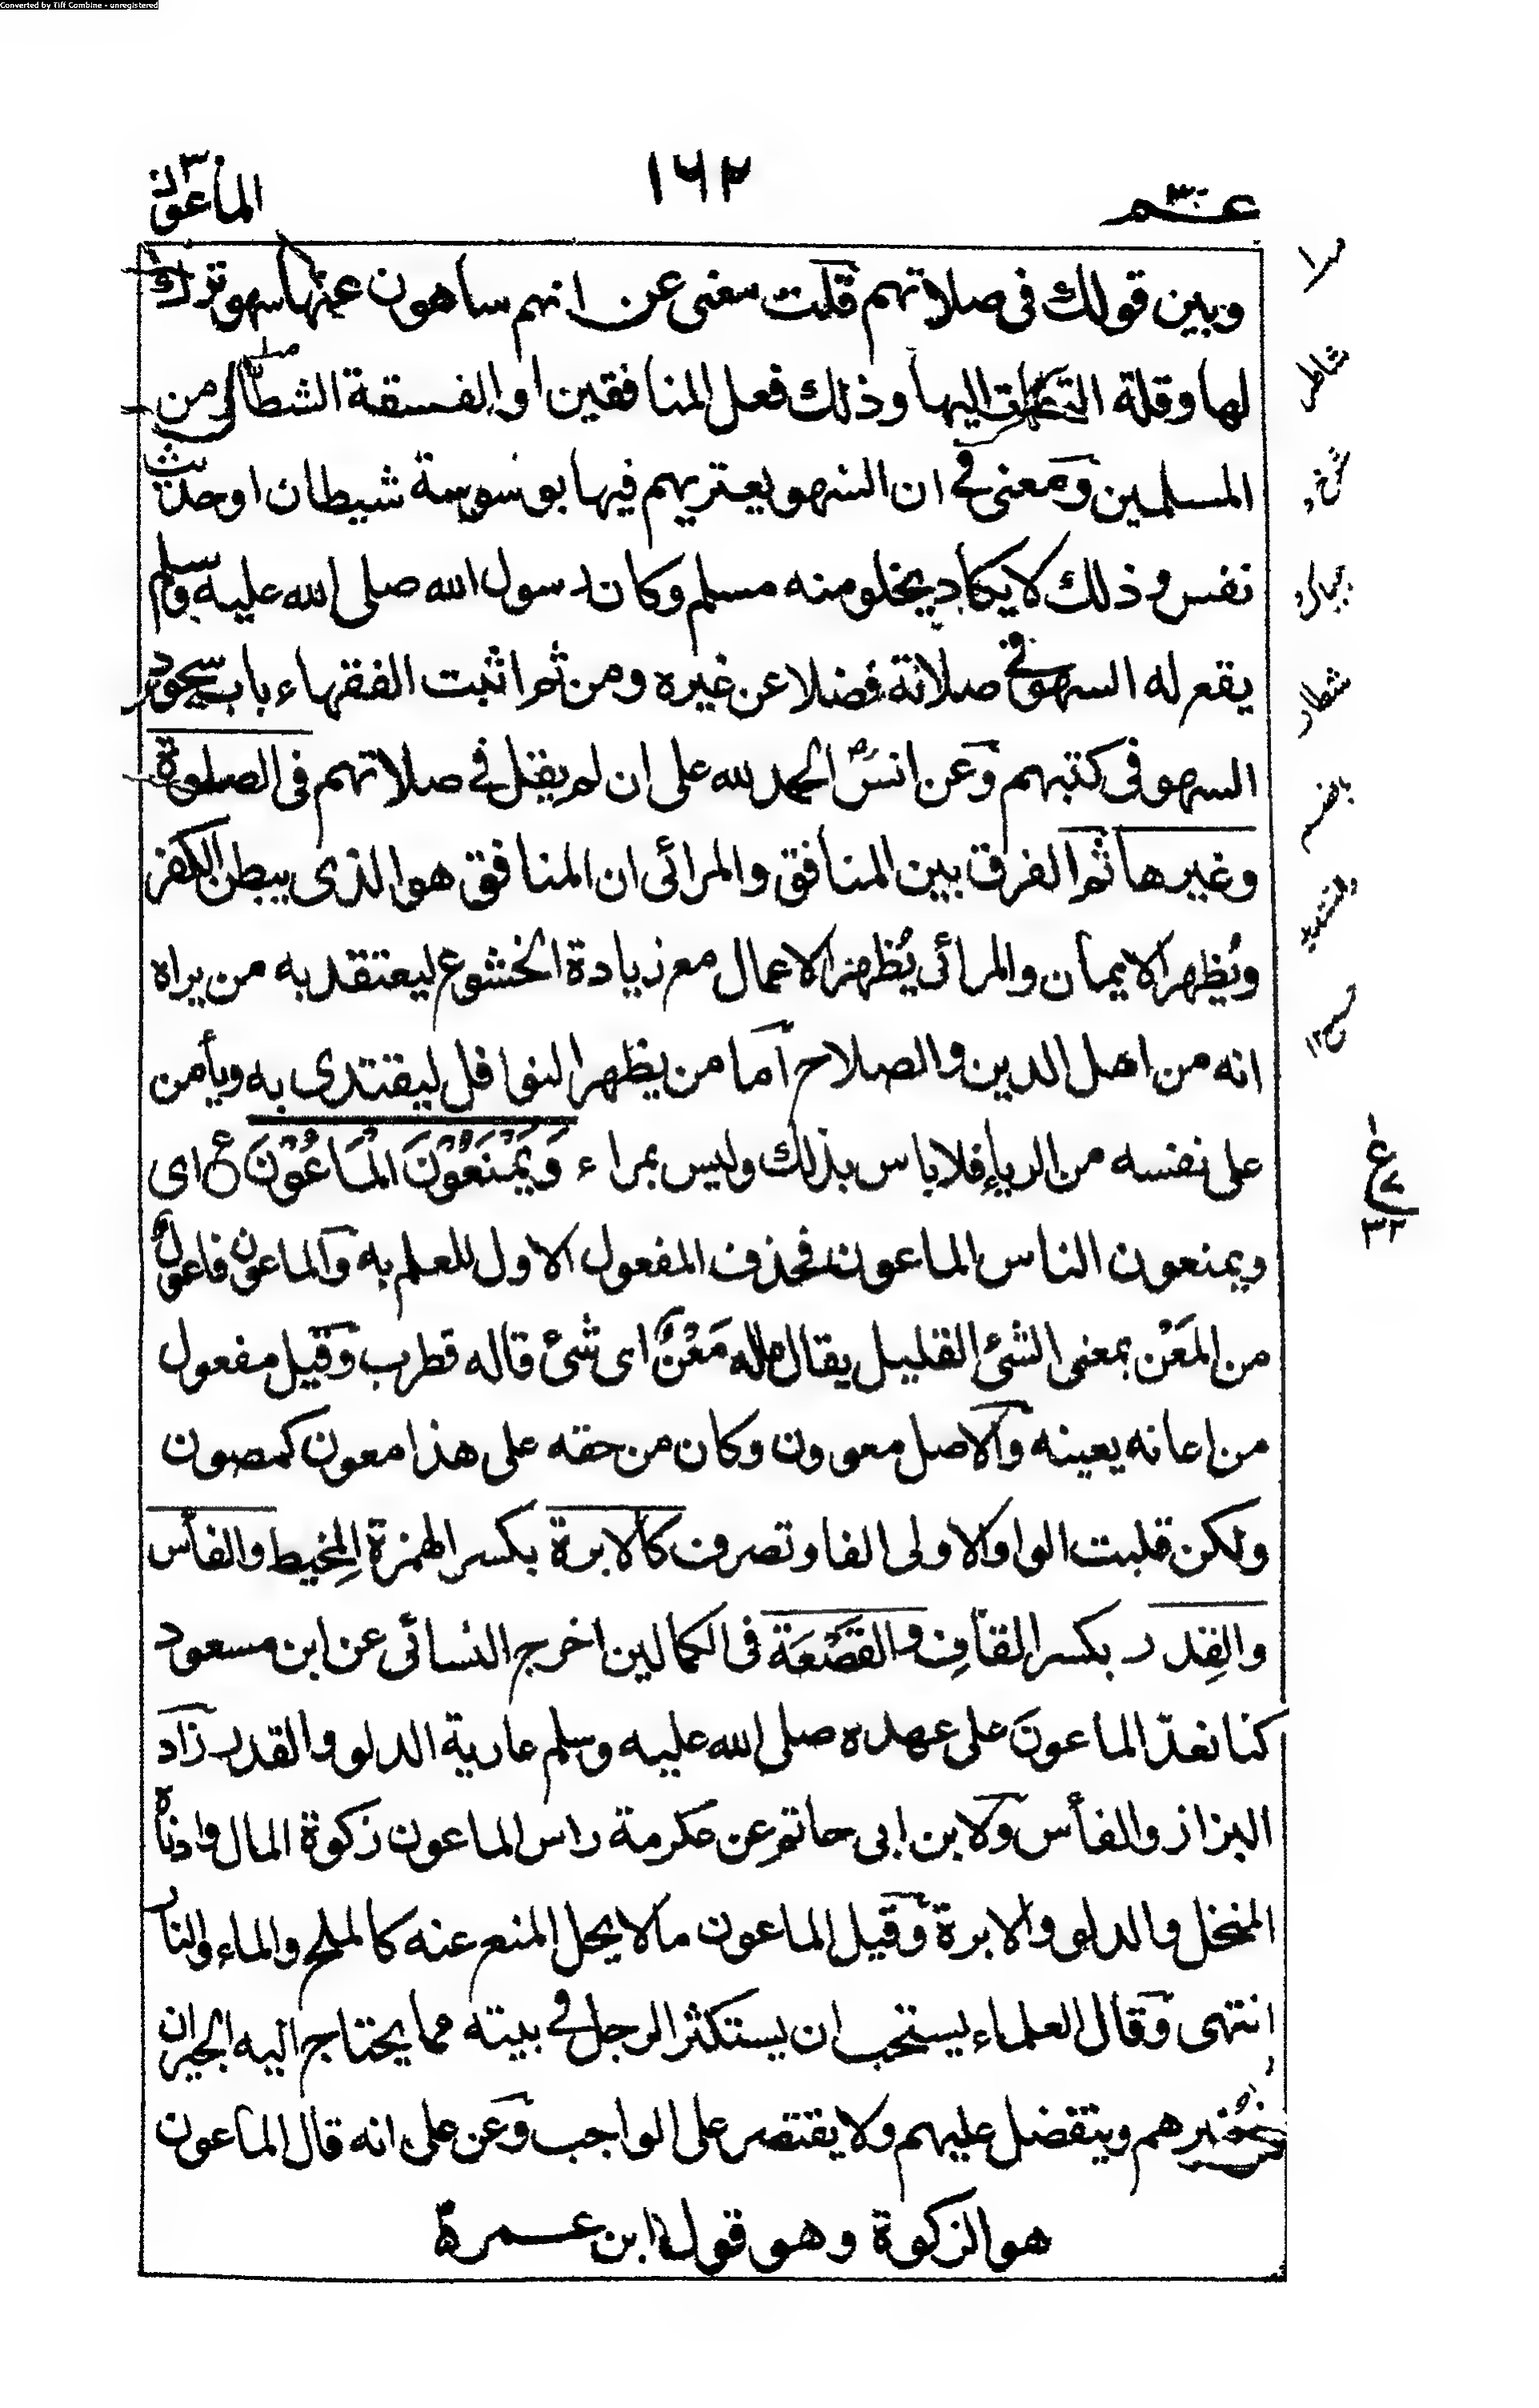 Converted by Tiff Combine - unregistered
عم ٣٠
١٦٢
الماعون
وبين قولك فى صلاتهم قلت معنى عن انهم ساهون عنها سهو ترك
لها وقلة التفات اليها وذلك فعل المنافقين او الفسقة الشطار من
المسلمين ومعنى فى ان السهو يعتريهم فيها بوسوسة شيطان او حديث
نفس وذلك لا يكاد يخلو منه مسلم وكان رسول الله صلى الله عليه وسلم
يقع له السهو فى صلاته فضلا عن غيره ومن ثم اثبت الفقهاء باب سجود
السهو فى كتبهم وعن انس الحمد لله على ان لم يقل فى صلاتهم فى الصلوة
وغيرها ثم الفرق بين المنافق والمرائى ان المنافق هو الذى يبطن الكفر
ويُظهر الايمان والمرائى يُظهر الاعمال مع زيادة الخشوع ليعتقد به من يراه
انه من اهل الدين والصلاح اما من يظهر النوافل ليقتدى به ويأمن
على نفسه من الرياء فلا باس بذلك وليس بمراء وَيَمْنَعُوْنَ الْمَاعُوْنَ ع اى
ويمنعون الناس الماعون فحذف المفعول الاول للعلم به والماعون فاعول
من المَعْن بمعنى الشئ القليل يقال ماله مَعْنٌ اى شئ قاله قطرب وقيل مفعول
من اعانه يعينه والاصل معوون وكان من حقه على هذا معون كمصون
ولكن قلبت الواو الاولى الفا وتصرف كالابرة بكسر الهمزة المِخيط والفأس
والقِدر بكسر القاف والقَصْعَة فى الكمالين اخرج النسائى عن ابن مسعود
كنا نعدّ الماعونَ على عهده صلى الله عليه وسلم عارية الدلو والقدر زاد
البزاز والفأس ولابن ابى حاتم عن عكرمة راس الماعون زكوة المال وادناه
المنخل والدلو والابرة وقيل الماعون مالا يحل المنع عنه كالملح والماء والنار
انتهى وقال العلماء يستحب ان يستكثر الرجل فى بيته مما يحتاج اليه الجيران
فيعيرهم ويتفضل عليهم ولا يقتصر على الواجب وعن على انه قال الماعون
هو الزكوة وهو قول ابن عمر
شاطر
شطار
ع
٧
٣٢